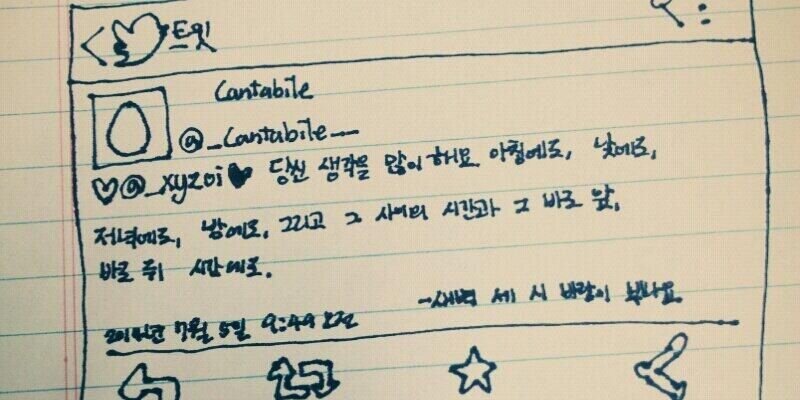 트윗
Cantabile
@_Cantabile__
♡@_xyzoi♥ 당신 생각을 많이 해요 아침에도, 낮에도,
저녁에도, 밤에도, 그리고 그 사이의 시간과 그 바로 앞,
바로 뒤 시간에도.
-새벽 세 시 바람이 부나요
2014년 7월 5일 9:49 오전